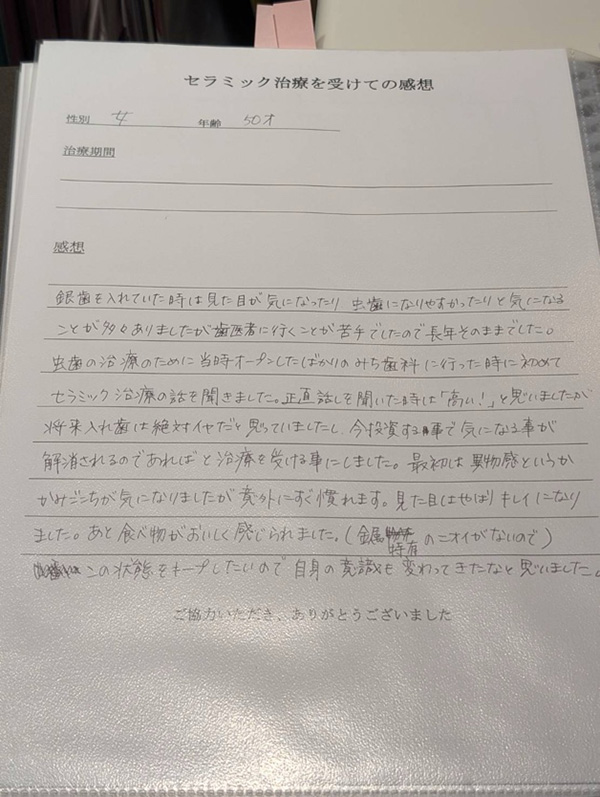 セラミック治療を受けての感想
性別 女 年齢 50才
治療期間
感想
銀歯を入れていた時は見た目が気になったり 虫歯になりやすかったりと気になる
ことが多々ありましたが歯医者に行くことが苦手でしたので長年そのままでした。
虫歯の治療のために当時オープンしたばかりのみち歯科に行った時に初めて
セラミック治療の話を聞きました。正直話しを聞いた時は「高い!」と思いましたが
将来入れ歯は絶対イヤだと思っていましたし、今投資する事で気になる事が
解消されるのであればと治療を受ける事にしました。最初は異物感というか
かみごこちが気になりましたが意外にすぐ慣れます。見た目はやはりキレイになり
ました。あと食べ物がおいしく感じられました。(金属特有のニオイがないので)
この状態をキープしたいので自身の意識も変わってきたなと思いました。
ご協力いただき、ありがとうございました